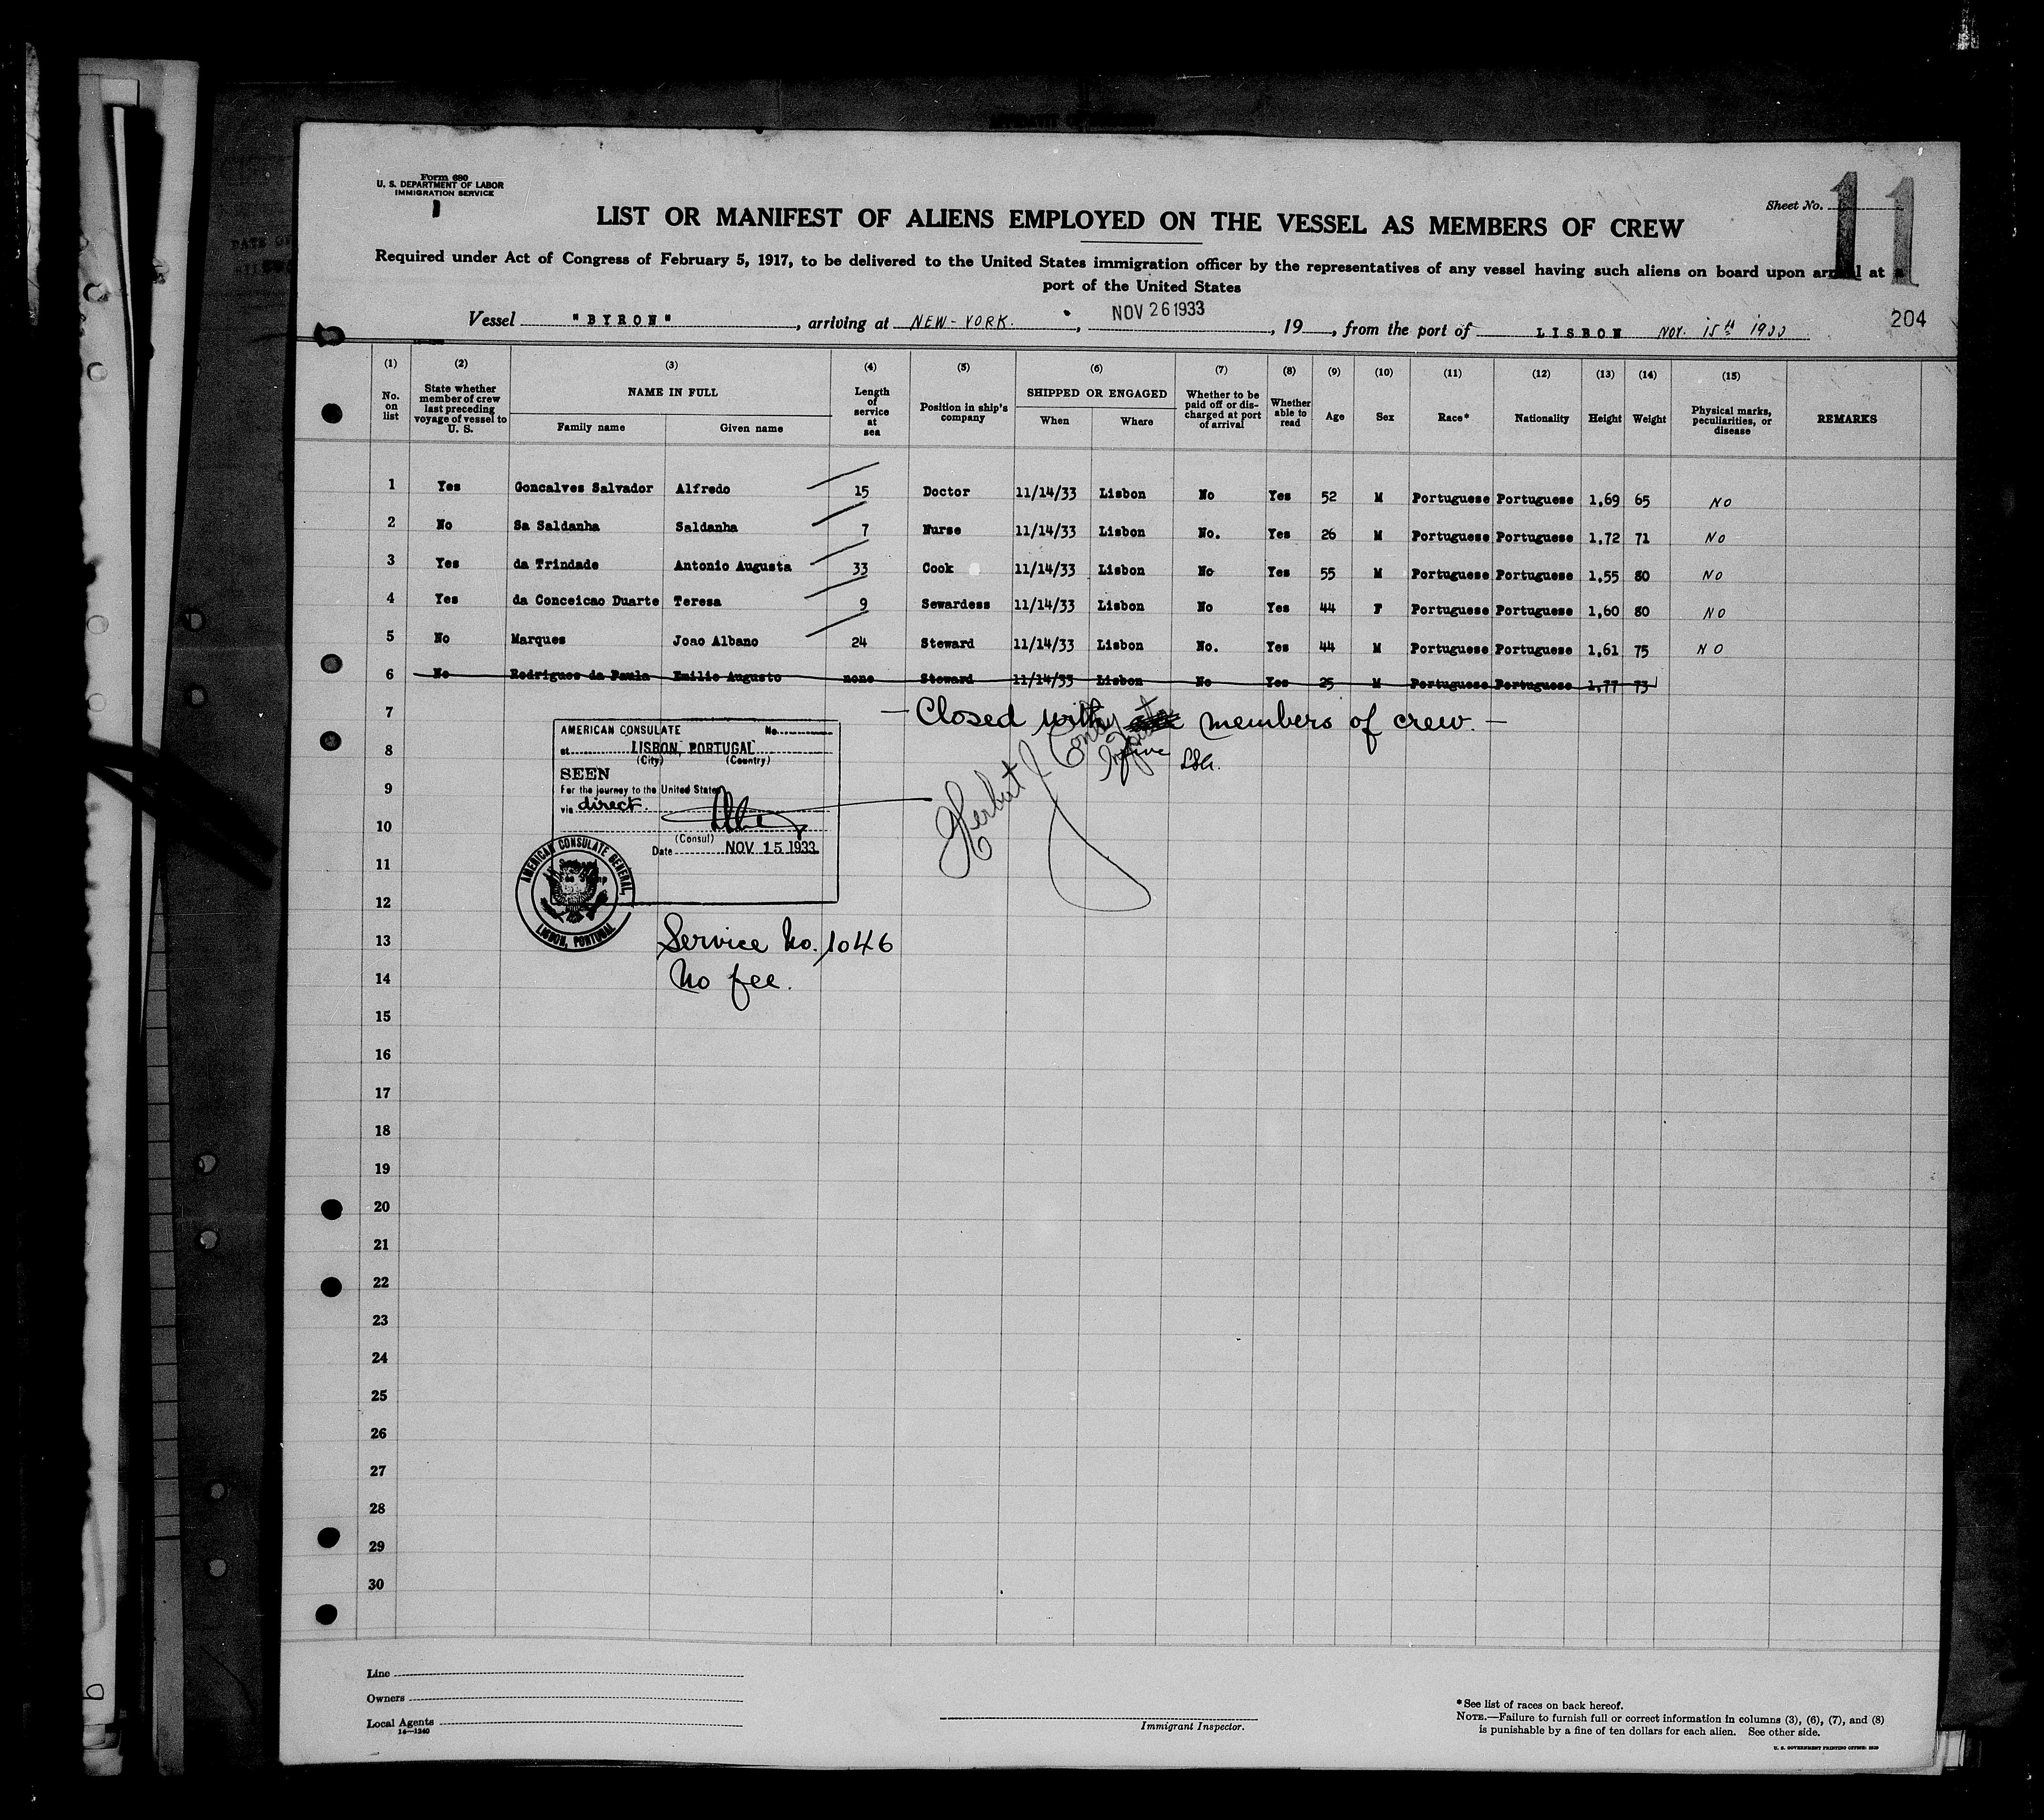 Form 680
U. S. DEPARTMENT OF LABOR
IMMIGRATION SERVICE
Sheet No. 11
LIST OR MANIFEST OF ALIENS EMPLOYED ON THE VESSEL AS MEMBERS OF CREW
Required under Act of Congress of February 5, 1917, to be delivered to the United States immigration officer by the representatives of any vessel having such aliens on board upon arrival at a
port of the United States
Vessel "BYRON", arriving at NEW-YORK., NOV 26 1933, 19, from the port of LISBON Nov. 15th 1933
204
(1) (2) (3) (4) (5) (6) (7) (8) (9) (10) (11) (12) (13) (14) (15)
No. on list
State whether member of crew last preceding voyage of vessel to U. S.
NAME IN FULL
Family name
Given name
Length of service at sea
Position in ship's company
SHIPPED OR ENGAGED
When
Where
Whether to be paid off or discharged at port of arrival
Whether able to read
Age
Sex
Race*
Nationality
Height
Weight
Physical marks, peculiarities, or disease
REMARKS
1 Yes Goncalves Salvador Alfredo 15 Doctor 11/14/33 Lisbon No Yes 52 M Portuguese Portuguese 1,69 65 NO
2 No Sa Saldanha Saldanha 7 Nurse 11/14/33 Lisbon No. Yes 26 M Portuguese Portuguese 1,72 71 NO
3 Yes da Trindade Antonio Augusta 33 Cook 11/14/33 Lisbon No Yes 55 M Portuguese Portuguese 1,55 80 NO
4 Yes da Conceicao Duarte Teresa 9 Sewardess 11/14/33 Lisbon No Yes 44 F Portuguese Portuguese 1,60 80 NO
5 No Marques Joao Albano 24 Steward 11/14/33 Lisbon No. Yes 44 M Portuguese Portuguese 1,61 75 NO
6 No Rodrigues da Paula Emilio Augusto none Steward 11/14/33 Lisbon No Yes 25 M Portuguese Portuguese 1,77 73
7 - Closed with members of crew. -
five
AMERICAN CONSULATE No.
at LISBON, PORTUGAL
(City) (Country)
SEEN
For the journey to the United States
via direct.
(Consul)
Date NOV 15 1933
AMERICAN CONSULATE GENERAL,
LISBON, PORTUGAL
Herbert J
Service No. 1046
No fee.
8
9
10
11
12
13
14
15
16
17
18
19
20
21
22
23
24
25
26
27
28
29
30
Line
Owners
Local Agents
14-1240
Immigrant Inspector.
*See list of races on back hereof.
NOTE.—Failure to furnish full or correct information in columns (3), (6), (7), and (8)
is punishable by a fine of ten dollars for each alien. See other side.